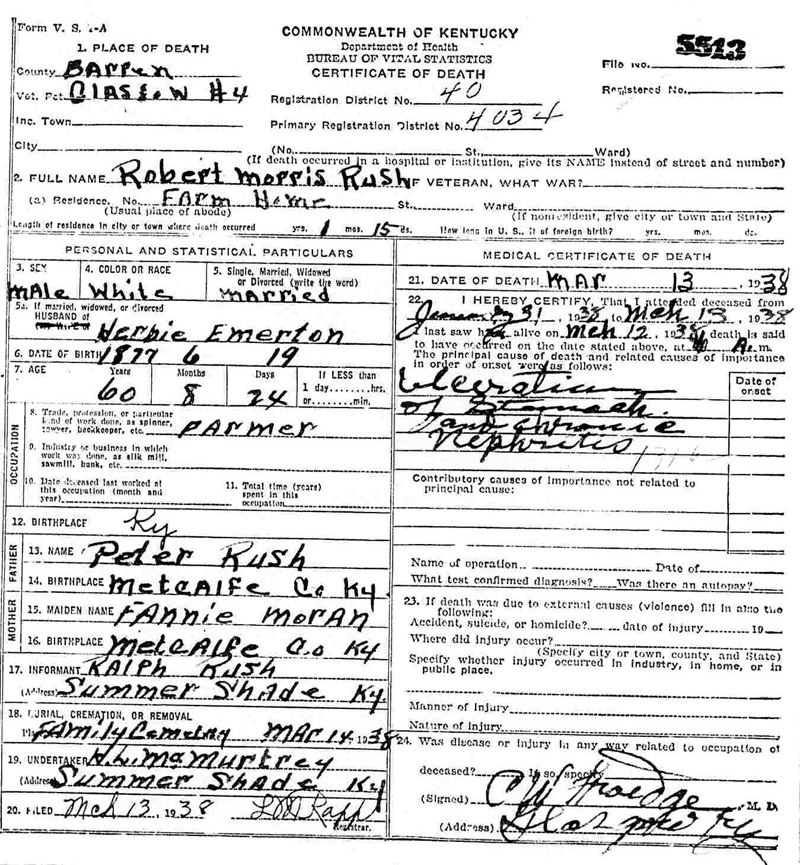 Form V. S. 1-A
COMMONWEALTH OF KENTUCKY
Department of Health
BUREAU OF VITAL STATISTICS
CERTIFICATE OF DEATH
File No. 5513
Registered No.
1. PLACE OF DEATH
County Barren
Vot. Pct. Glasgow #4
Inc. Town
City
Registration District No. 40
Primary Registration District No. 4034
(No. St., Ward)
(If death occurred in a hospital or institution, give its NAME instead of street and number)
2. FULL NAME Robert Morris Rush IF VETERAN, WHAT WAR?
(a) Residence. No. Farm Home St., Ward
(Usual place of abode) (If nonresident, give city or town and State)
Length of residence in city or town where death occurred yrs. 1 mos. 15 ds. How long in U. S., if of foreign birth? yrs. mos. ds.
PERSONAL AND STATISTICAL PARTICULARS
3. SEX 4. COLOR OR RACE 5. Single, Married, Widowed
or Divorced (write the word)
Male White Married
5a. If married, widowed, or divorced
HUSBAND of
(or) WIFE of Herbie Emerton
6. DATE OF BIRTH 1877 6 19
7. AGE Years Months Days If LESS than
60 8 24 1 day......hrs.
or......min.
OCCUPATION
8. Trade, profession, or particular
kind of work done, as spinner,
sawyer, bookkeeper, etc. Farmer
9. Industry or business in which
work was done, as silk mill,
sawmill, bank, etc.
10. Date deceased last worked at
this occupation (month and
year)
11. Total time (years)
spent in this
occupation
12. BIRTHPLACE Ky
FATHER
13. NAME Peter Rush
14. BIRTHPLACE Metcalfe Co Ky.
MOTHER
15. MAIDEN NAME Fannie Moran
16. BIRTHPLACE Metcalfe Co Ky
17. INFORMANT Ralph Rush
(Address) Summer Shade Ky.
18. BURIAL, CREMATION, OR REMOVAL
Family Cemetery Mar 14, 1938
19. UNDERTAKER H.L. McMurtrey
(Address) Summer Shade Ky
20. FILED Mch 13, 1938
Registrar.
MEDICAL CERTIFICATE OF DEATH
21. DATE OF DEATH Mar 13, 1938
22. I HEREBY CERTIFY, That I attended deceased from
January 31, 1938 to Mch 13, 1938
I last saw h alive on Mch 12, 1938, death is said
to have occurred on the date stated above, at A. m.
The principal cause of death and related causes of importance
in order of onset were as follows:
Date of
onset
Ulceration
of Stomach.
and chronic
Nephritis
Contributory causes of importance not related to
principal cause:
Name of operation Date of
What test confirmed diagnosis? Was there an autopsy?
23. If death was due to external causes (violence) fill in also the
following:
Accident, suicide, or homicide? date of injury 19
Where did injury occur?
(Specify city or town, county, and State)
Specify whether injury occurred in industry, in home, or in
public place.
Manner of injury
Nature of injury
24. Was disease or injury in any way related to occupation of
deceased? If so, specify
(Signed) C W Froedge M. D.
(Address) Glasgow Ky